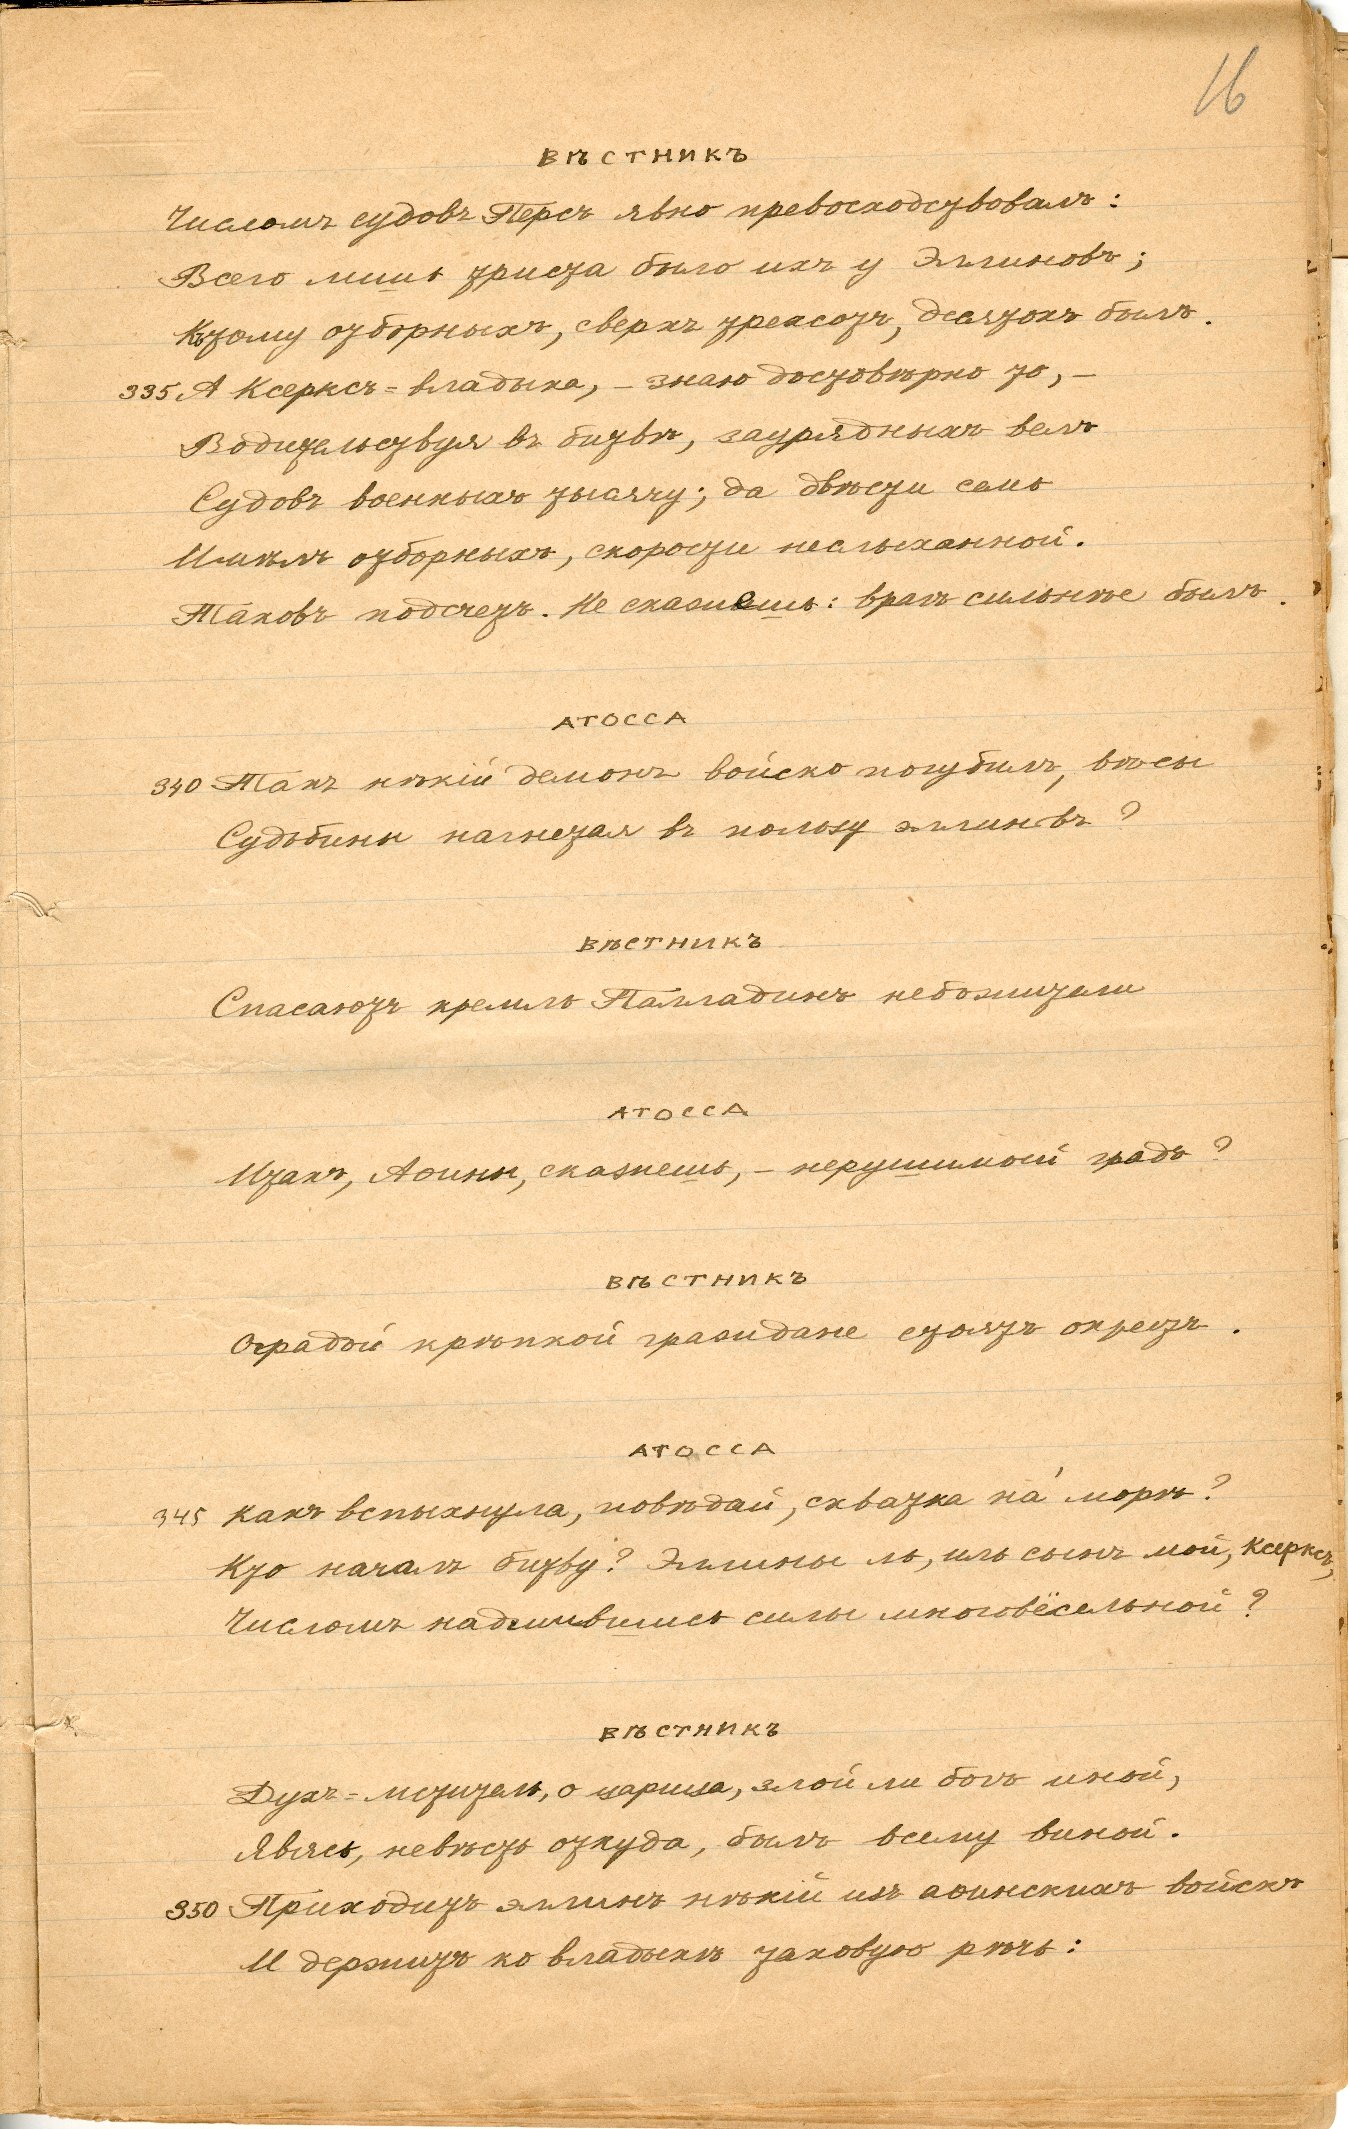 16
ВѢСТНИКЪ
Числомъ судовъ Персъ явно превосходствовалъ:
Всего лишь триста было ихъ у Эллиновъ;
Къ тому отборныхъ, сверхъ трехсотъ, десятокъ былъ.
335 А Ксерксъ=владыка, – знаю достовѣрно то, –
Водительствуя въ битвѣ, заурядныхъ велъ
Судовъ военныхъ тысячу; да двѣсти семь
Имѣлъ отборныхъ, скорости неслыханной.
Таковъ подсчетъ. Не скажешь: врагъ сильнѣе былъ.
АТОССА
340 Такъ нѣкій демонъ войско погубилъ, вѣсы
Судьбины нагнетая въ пользу эллиновъ?
ВѢСТНИКЪ
Спасаютъ кремль Палладинъ небожители
АТОССА
Итакъ, Аѳины, скажешь, – нерушимый градъ?
ВѢСТНИКЪ
Оградой крѣпкой граждане стоятъ окрестъ.
АТОССА
345 Какъ вспыхнула, повѣдай, схватка на́ морѣ?
Кто началъ битву? Эллины ль, иль сынъ мой, Ксерксъ,
Числомъ надмившись силы многовёсельной?
ВѢСТНИКЪ
Духъ=мститель, о царица, злой ли богъ иной,
Явясь, невѣсть откуда, былъ всему виной.
350 Приходитъ эллинъ нѣкій изъ аѳинскихъ войскъ
И держитъ ко владыкѣ таковую рѣчь: